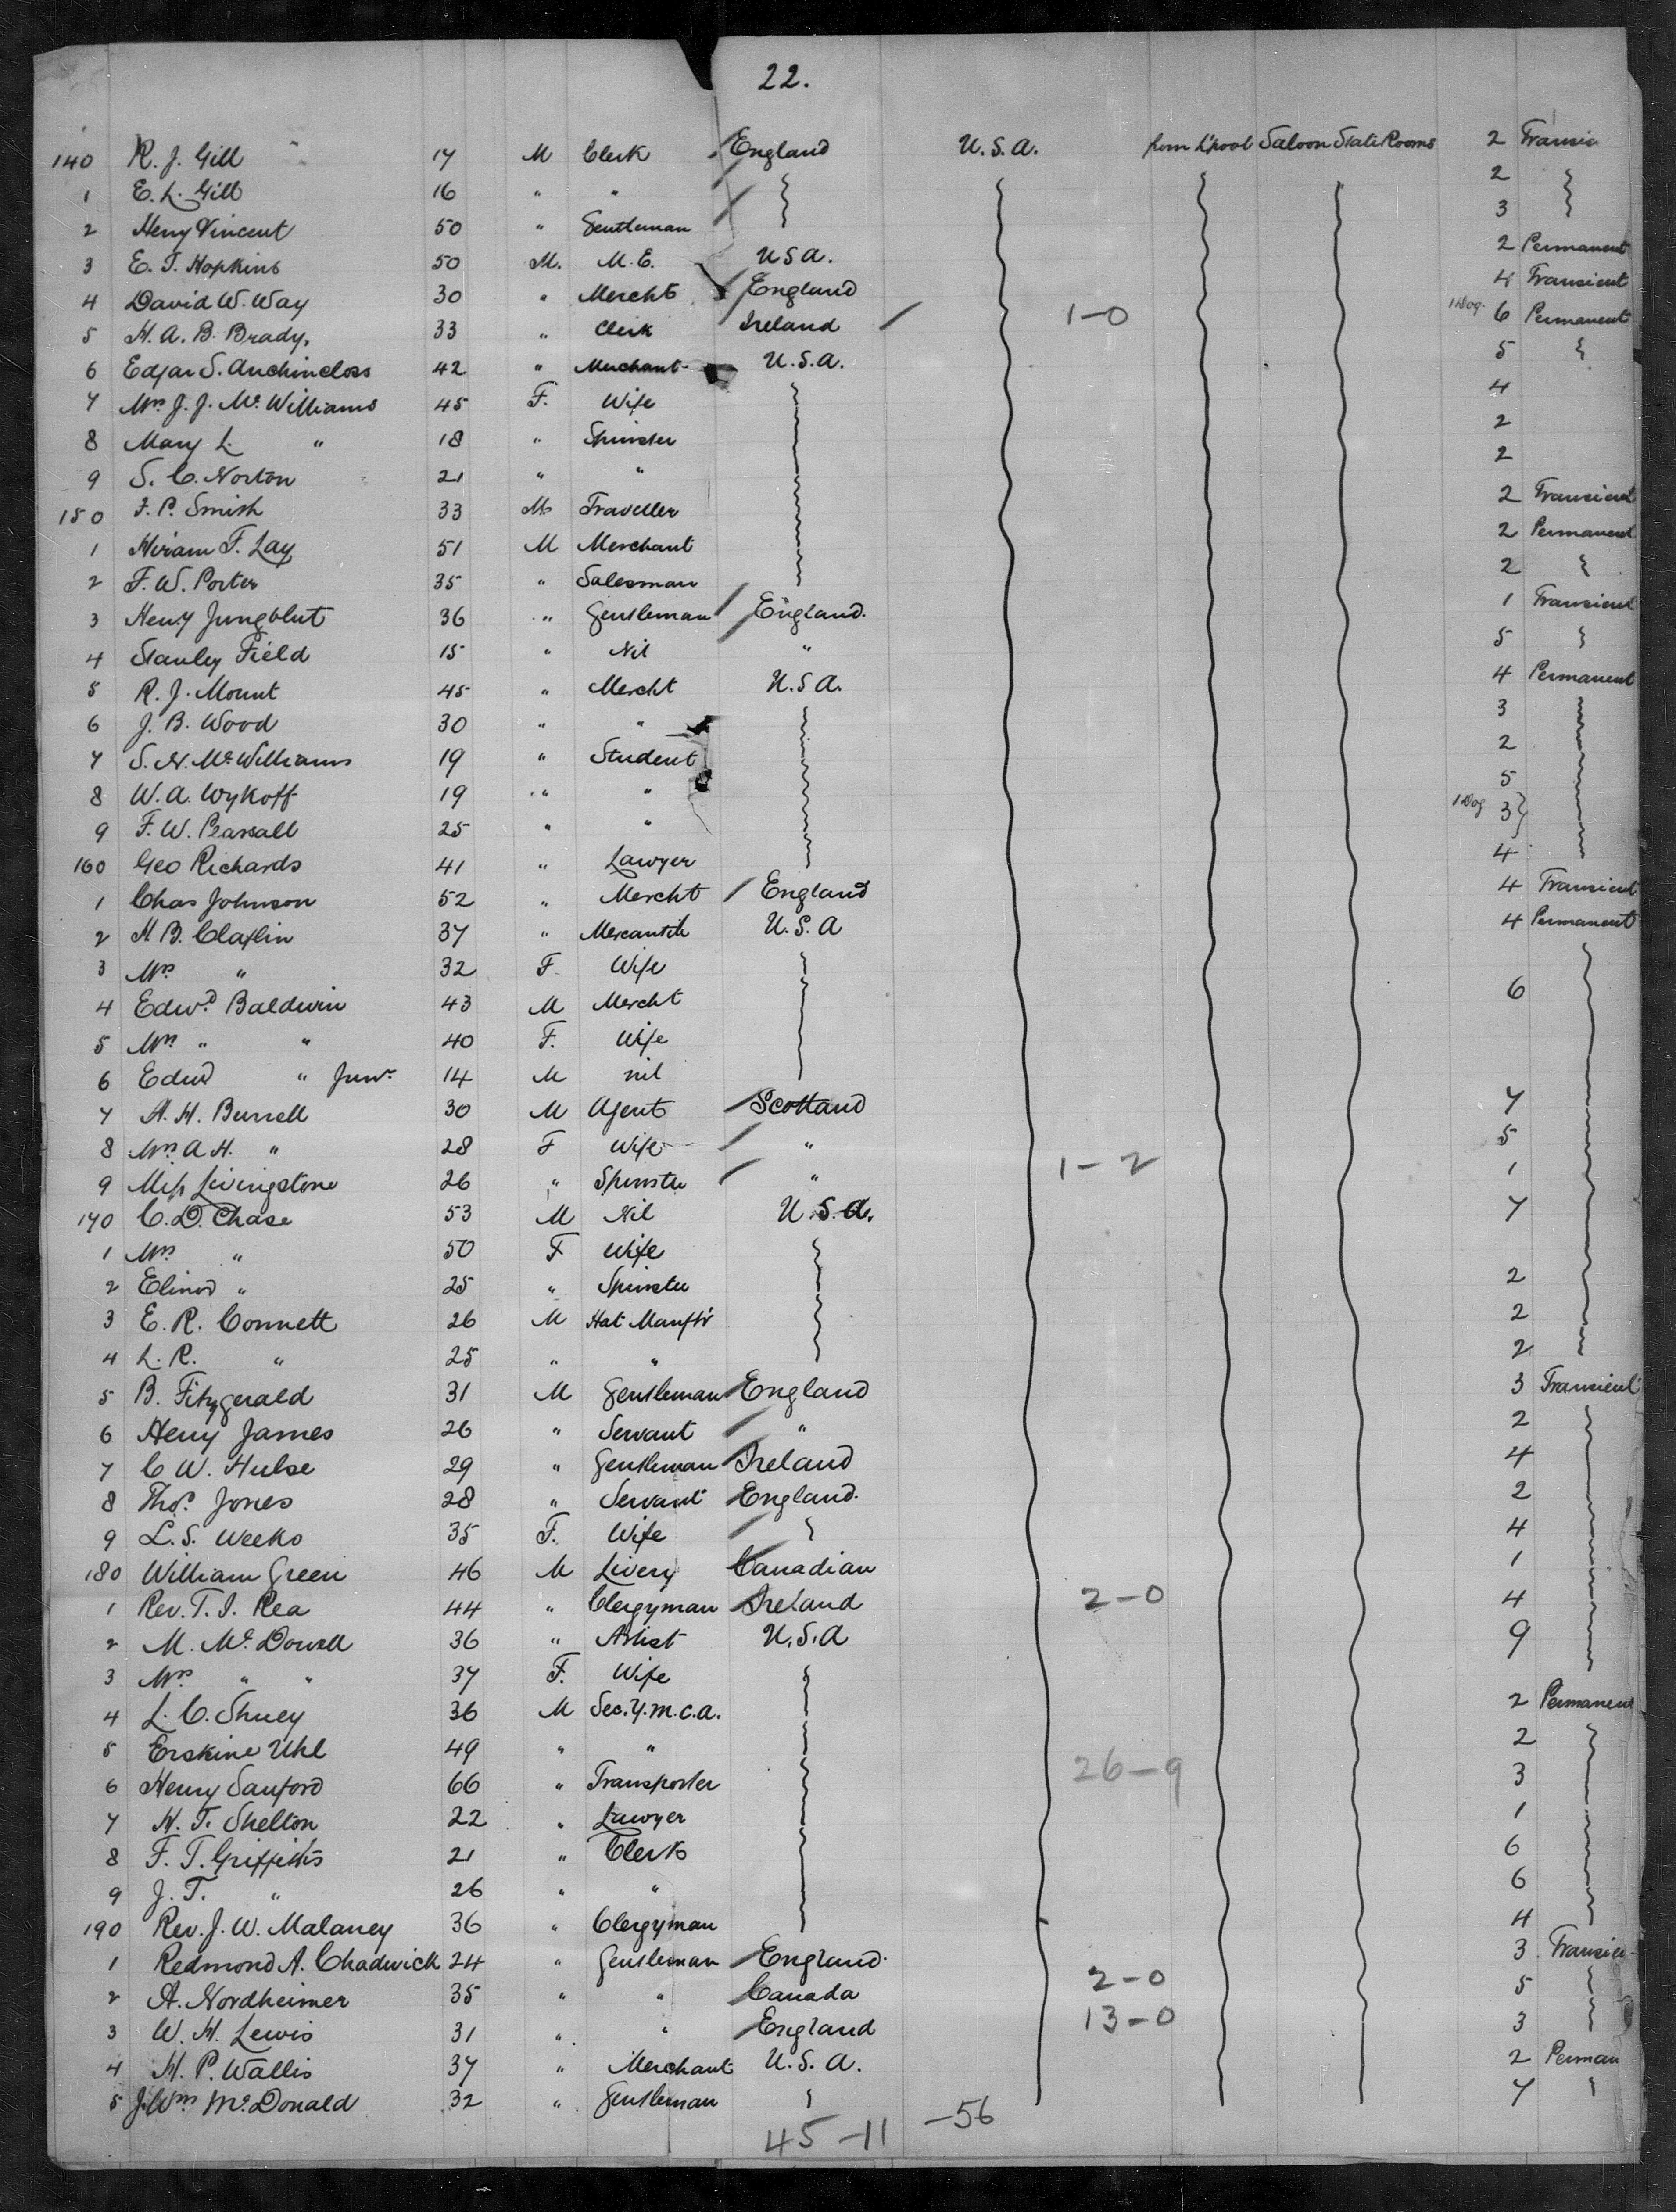 22.
140 R. J. Gill 17 M Clerk England U.S.A. from L'pool Saloon State Rooms 2 Transie
1 E. L. Gill 16 " " 2
2 Henry Vincent 50 " Gentleman 3
3 E. T. Hopkins 50 M. M.E. USA. 2 Permanent
4 David W. Way 30 " Mercht England 4 Transient
5 H. A. B. Brady, 33 " Clerk Ireland 1-0 1 Dog. 6 Permanent
6 Edgar S. Auchincloss 42 " Merchant U.S.A. 5
7 Mrs J. J. McWilliams 45 F. Wife 4
8 Mary L. " 18 " Spinster 2
9 S. C. Norton 21 " " 2
150 F. P. Smith 33 M Traveller 2 Transient
1 Hiram F. Lay 51 M Merchant 2 Permanent
2 F. W. Porter 35 " Salesman 2
3 Henry Jungblut 36 " Gentleman England. 1 Transient
4 Stanley Field 15 " Nil " 5
5 R. J. Mount 45 " Mercht U.S.A. 4 Permanent
6 J. B. Wood 30 " " 3
7 S. N. McWilliams 19 " Student 2
8 W. A. Wykoff 19 " " 5
9 F. W. Pearsall 25 " " 1 Dog 3
160 Geo Richards 41 " Lawyer 4
1 Chas Johnson 52 " Mercht England 4 Transient
2 H B. Claflin 37 " Mercantile U.S.A 4 Permanent
3 Mrs " 32 F. Wife
4 Edwd Baldwin 43 M Mercht 6
5 Mrs " " 40 F. Wife
6 Edwd " Junr 14 M nil
7 A. H. Burrell 30 M Agent Scotland 7
8 Mrs A H. " 28 F Wife " 5
9 Miss Livingstone 26 " Spinster " 1-2 1
170 C. D. Chase 53 M Nil U.S.A. 7
1 Mrs " 50 F Wife
2 Elinor " 25 " Spinster 2
3 E. R. Connett 26 M Hat Manftr 2
4 L. R. " 25 " " 2
5 B. Fitzgerald 31 M Gentleman England 3 Transient
6 Henry James 26 " Servant " 2
7 C W. Hulse 29 " Gentleman Ireland 4
8 Thos. Jones 28 " Servant England. 2
9 L. S. Weeks 35 F. Wife 4
180 William Green 46 M Livery Canadian 1
1 Rev. T. I. Rea 44 " Clergyman Ireland 2-0 4
2 M. McDowell 36 " Artist U.S.A 9
3 Mrs " " 37 F. Wife
4 L. C. Shuey 36 M Sec. Y.M.C.A. 2 Permanent
5 Erskine Uhl 49 " " 2
6 Henry Sanford 66 " Transporter 26-9 3
7 H. T. Shelton 22 " Lawyer 1
8 F. T. Griffiths 21 " Clerk 6
9 J. T. " 26 " " 6
190 Rev. J. W. Malaney 36 " Clergyman 4
1 Redmond A. Chadwick 24 " Gentleman England. 3 Transien
2 A. Nordheimer 35 " " Canada 2-0 5
3 W. H. Lewis 31 " " England 13-0 3
4 H. P. Wallis 37 " Merchant U.S.A. 2 Perman
5 J. Wm McDonald 32 " Gentleman 7
45-11 -56